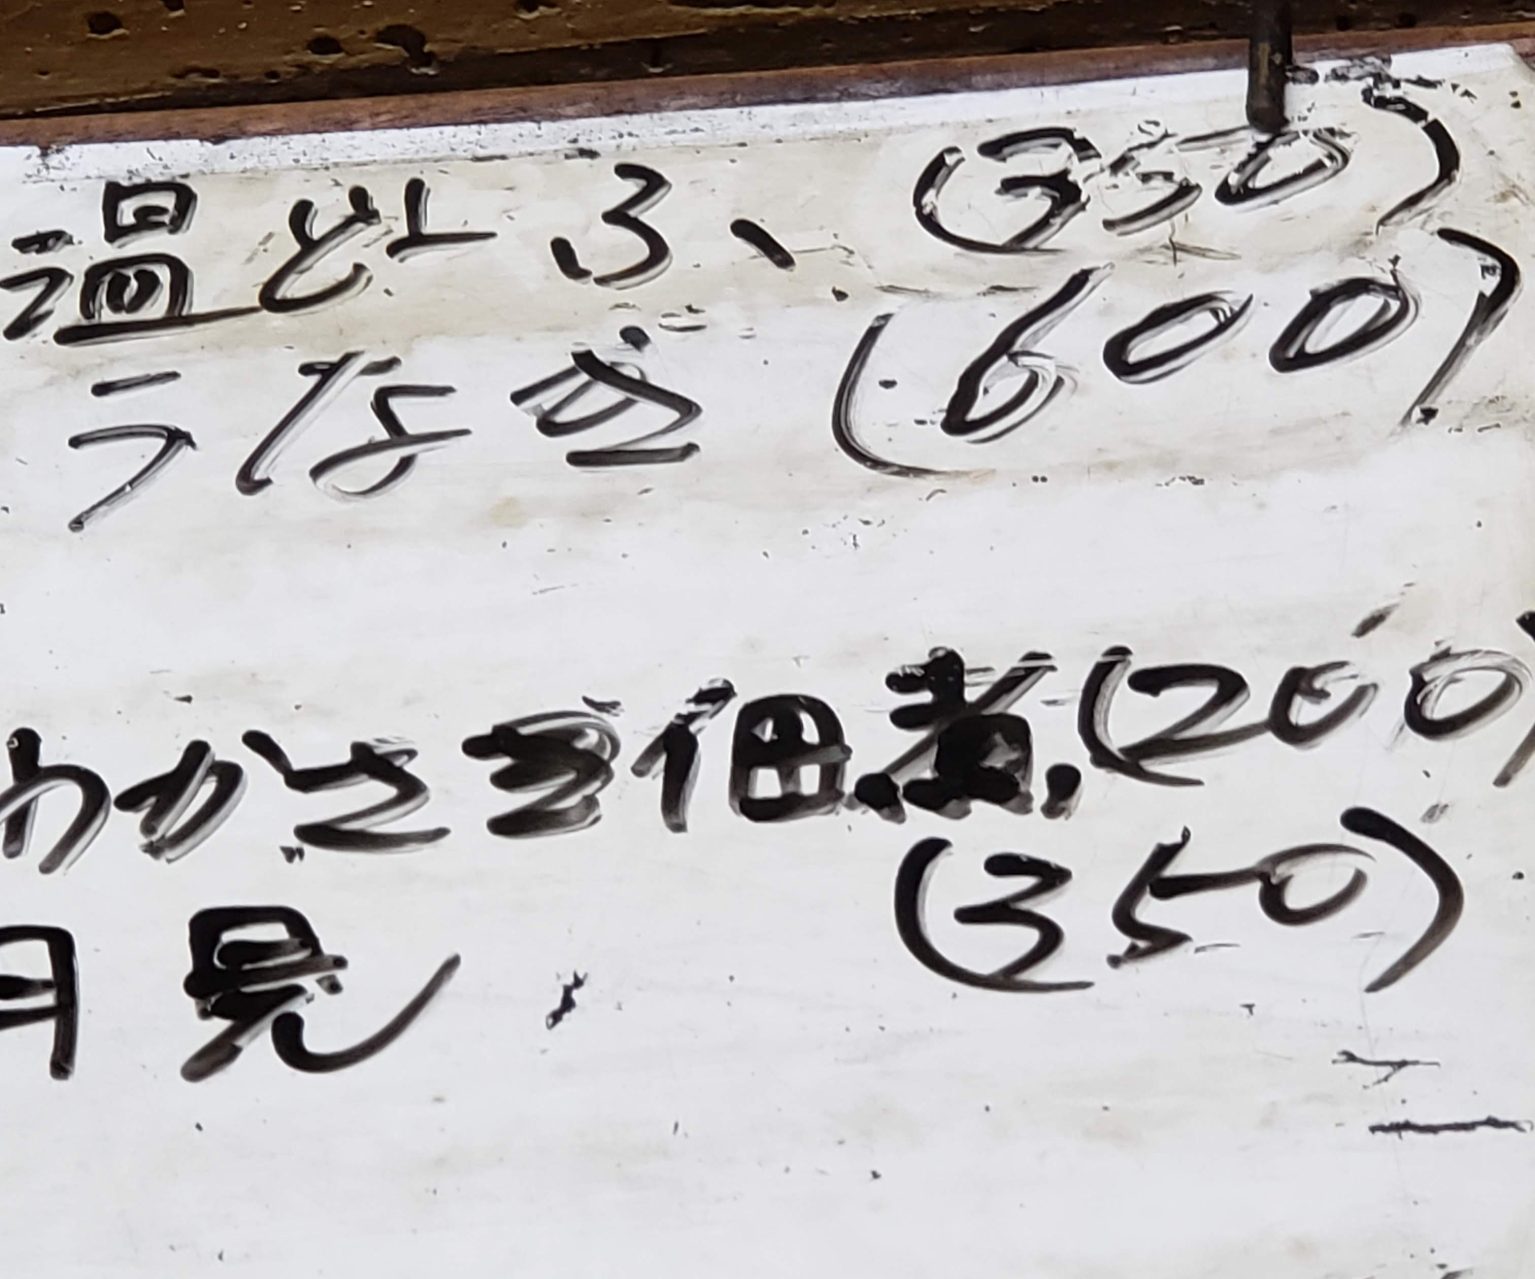 温どふ、(350)
うなぎ(600)
わかさぎ佃煮(200)
月見(350)